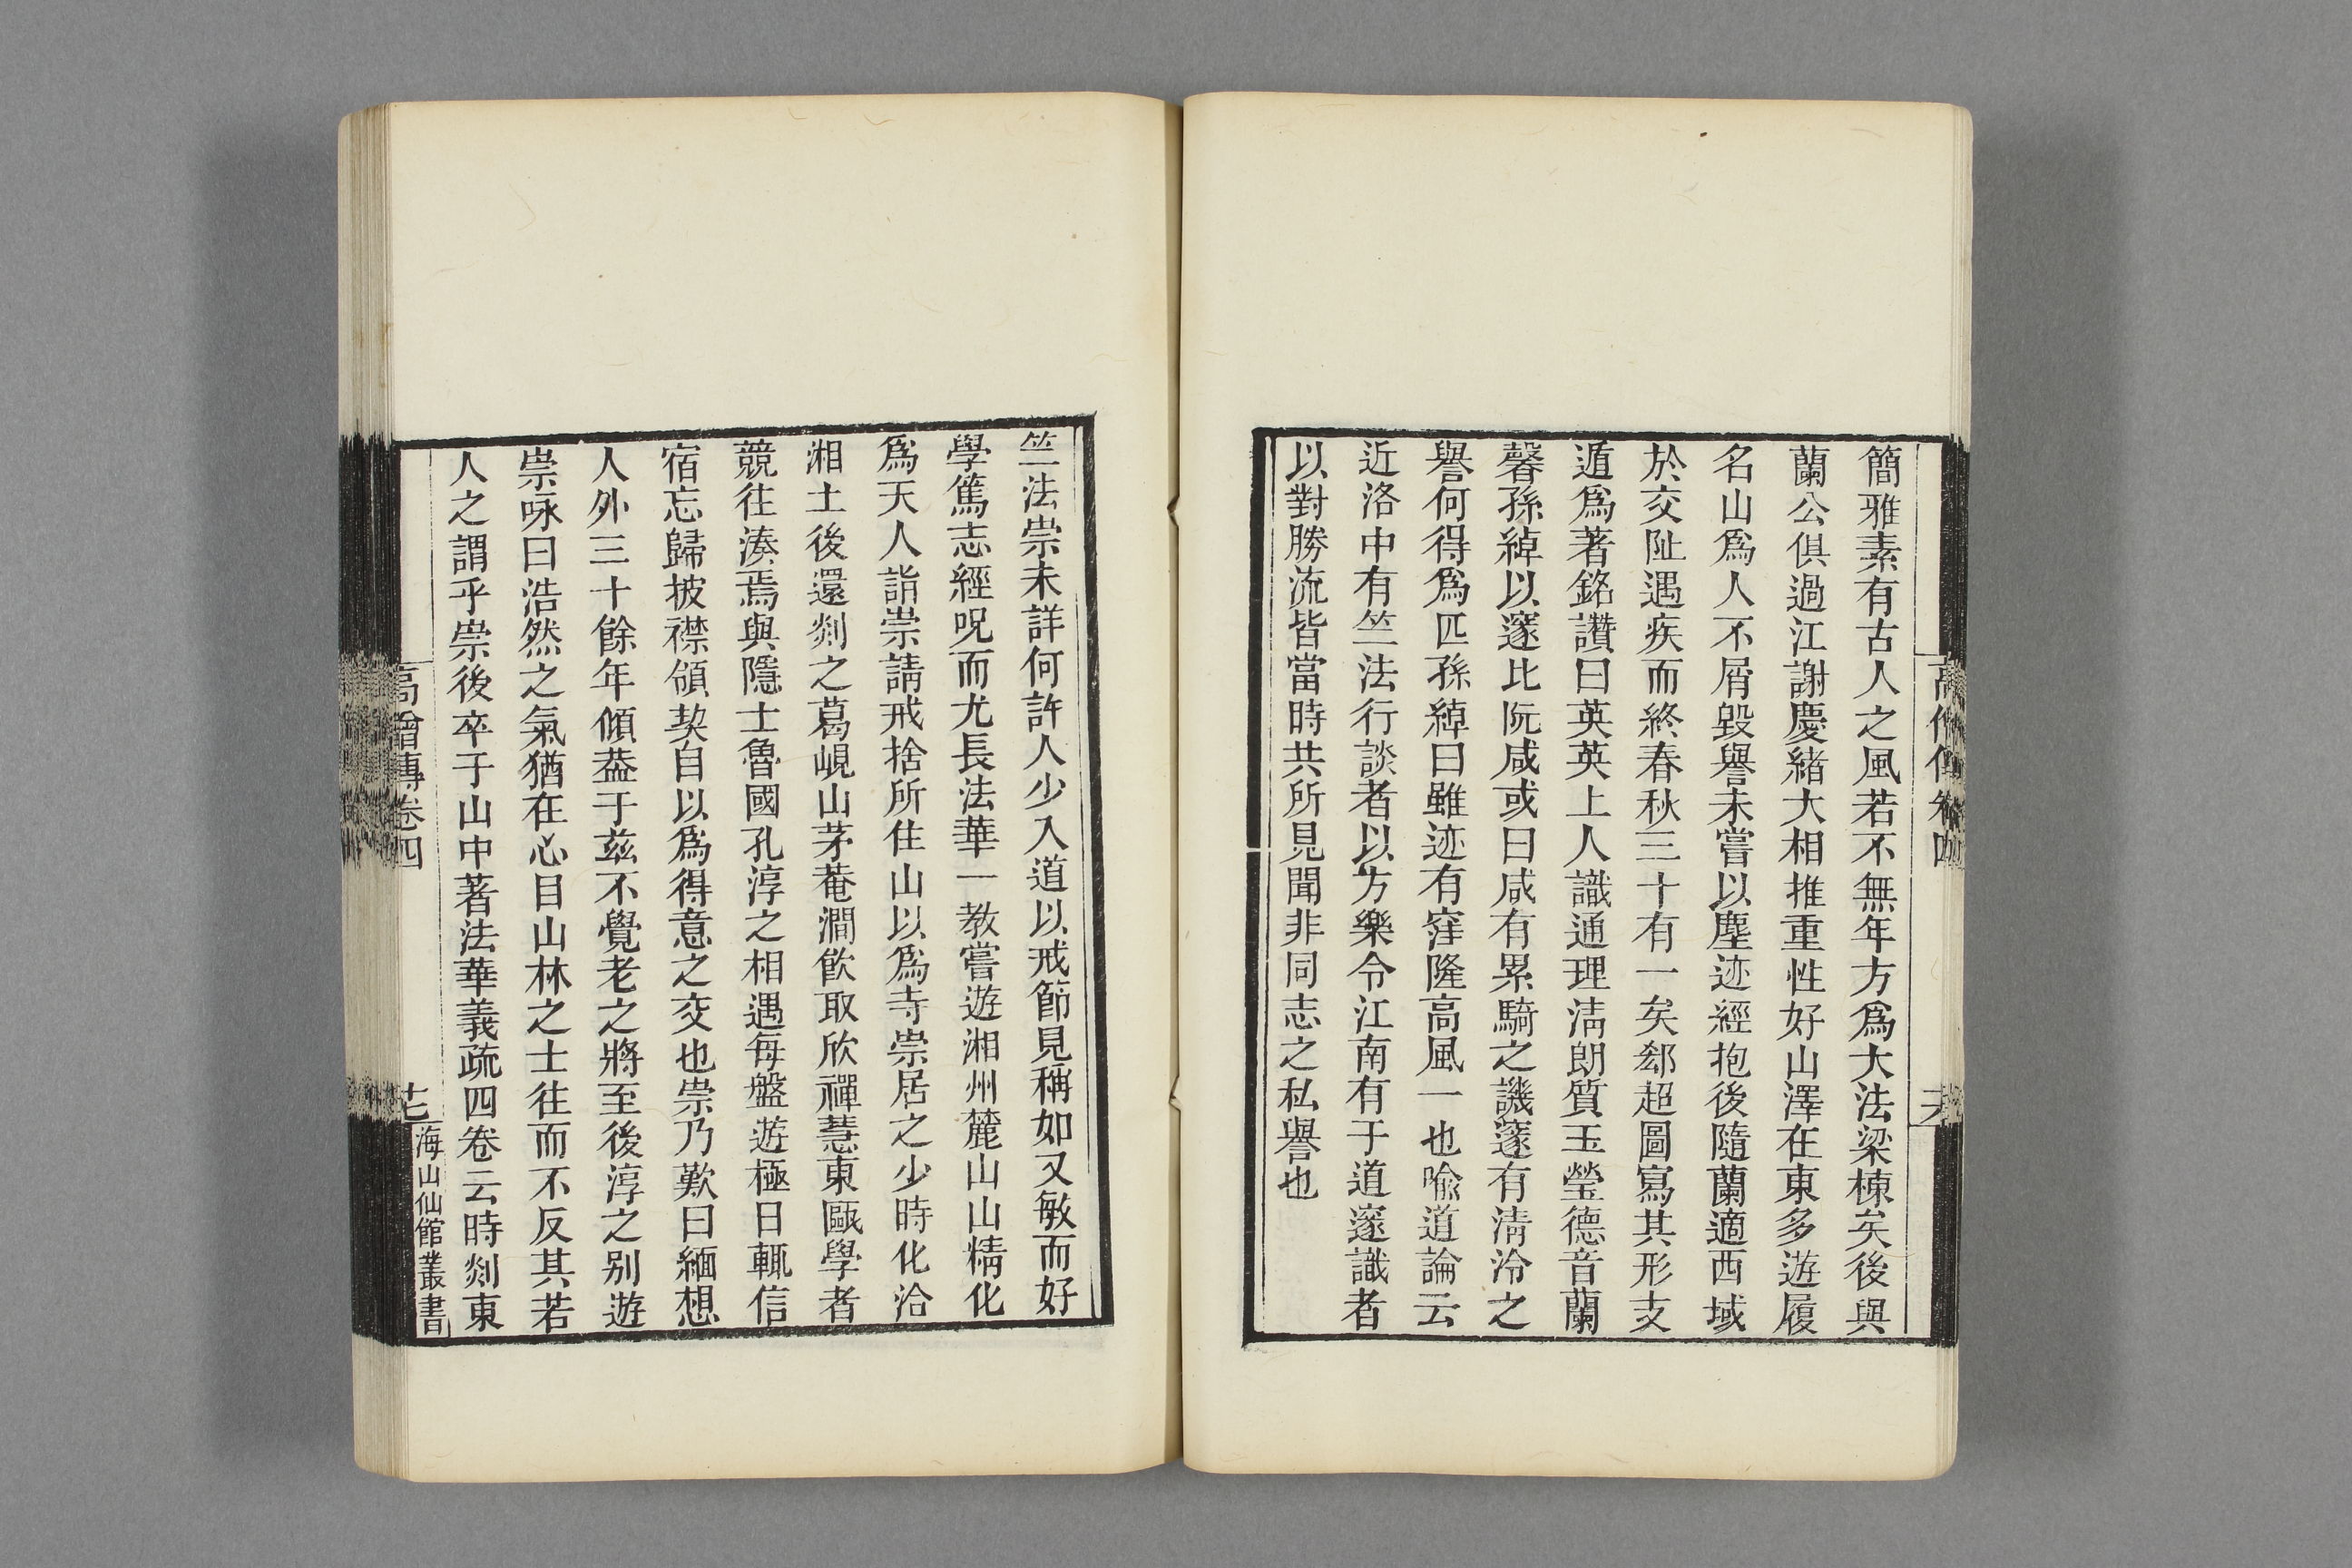 簡雅素有古人之風若不無年方爲大法梁棟矣後與
蘭公俱過江謝慶緒大相推重性好山澤在東多遊履
名山爲人不屑毀譽未嘗以塵迹經抱後隨蘭適西域
於交阯遇疾而終春秋三十有一矣郄超圖寫其形支
遁爲著銘讚曰英英上人識通理淸朗質玉瑩德音蘭
馨孫綽以邃比阮咸或曰咸有累騎之譏邃有淸泠之
譽何得爲匹孫綽曰雖迹有窪隆高風一也喩道論云
近洛中有竺法行談者以方樂令江南有于道邃識者
以對勝流皆當時共所見聞非同志之私譽也
竺法崇未詳何許人少入道以戒節見稱如又敏而好
學篤志經呪而尤長法華一教嘗遊湘州麓山山精化
爲天人詣崇請戒捨所住山以爲寺崇居之少時化洽
湘土後還剡之葛峴山茅菴澗飮取欣禪慧東甌學者
競往湊焉與隱士魯國孔淳之相遇每盤遊極日輒信
宿忘歸披襟領契自以爲得意之交也崇乃歎曰緬想
人外三十餘年傾葢于茲不覺老之將至後淳之别遊
崇咏曰浩然之氣猶在心目山林之士往而不反其若
人之謂乎崇後卒于山中著法華義疏四卷云時剡東
高僧傳卷四
海山仙館叢書